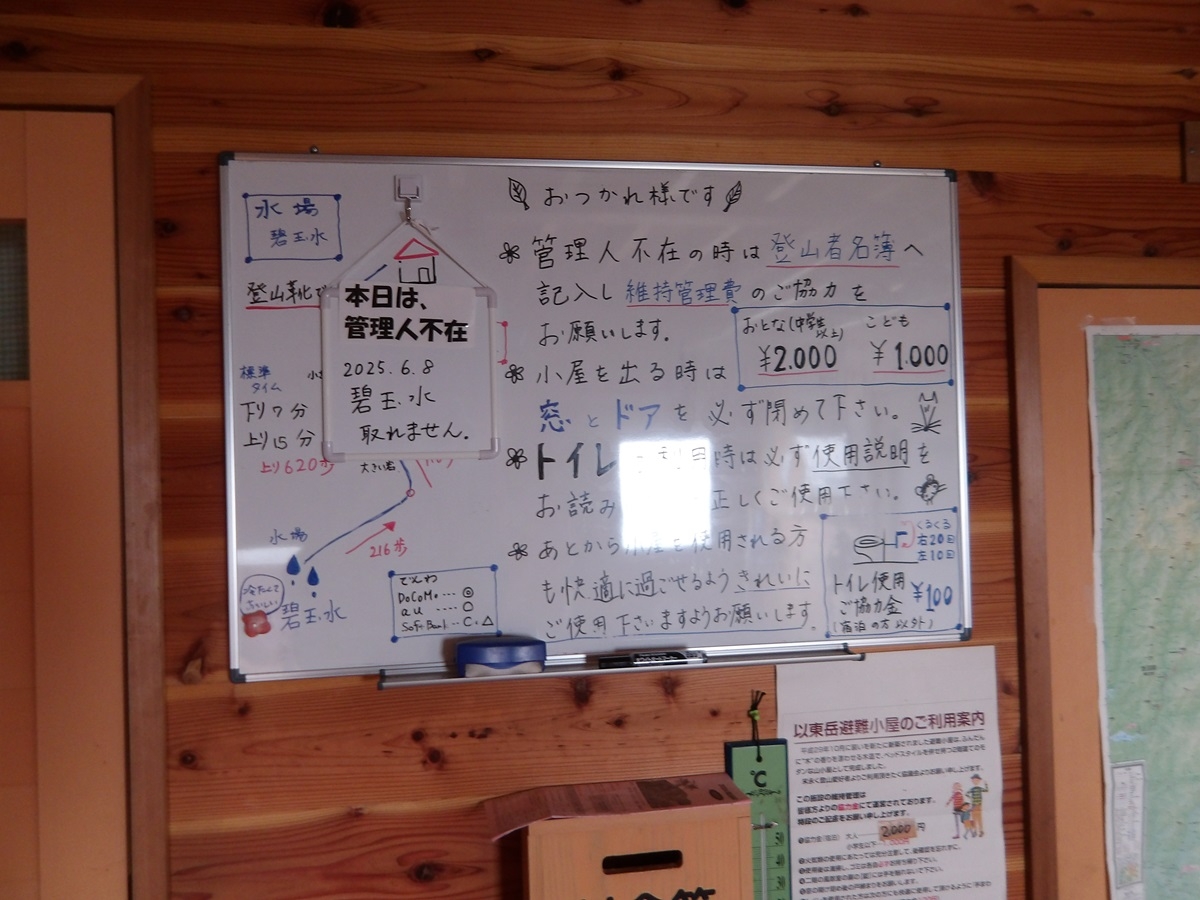 水場
碧玉水
登山靴で
標準
タイム
下り7分
上り15分
上り620歩
大きい岩
水場
216歩
冷たくて
おいしい
碧玉水
でんわ
DoCoMo … ◎
au …. ○
SoftBank … ○・△
本日は、
管理人不在
2025.6.8
碧玉水
取れません。
おつかれ様です
管理人不在の時は登山者名簿へ
記入し維持管理費のご協力を
お願いします。
おとな(中学生以上) こども
¥2.000 ¥1.000
小屋を出る時は
窓とドアを必ず閉めて下さい。
トイレ 時は必ず使用説明を
お読み 正しくご使用下さい。
あとから小屋を使用される方
も快適に過ごせるようきれいに
ご使用下さいますようお願いします。
くるくる
右20回
左10回
トイレ使用
ご協力金
¥100
(宿泊の方以外)
℃
50
40
30
以東岳避難小屋のご利用案内
この施設の維持管理は
皆様方よりの協力金にて運営されております。
施設のご配慮をお願い申し上げます。
大人 2,000円